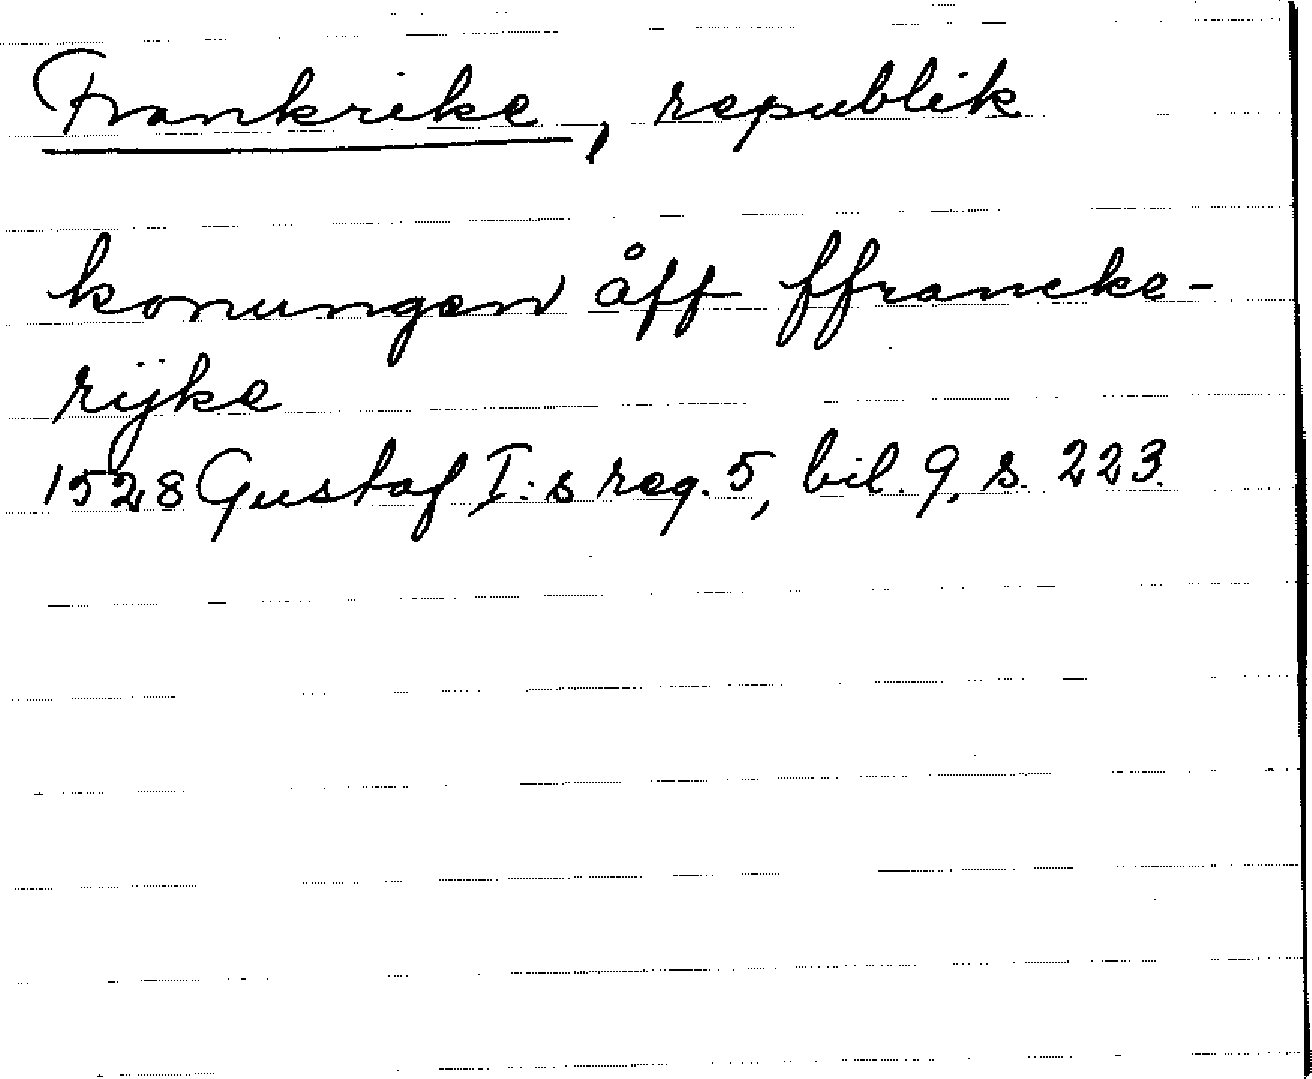 Frankrike, republik
konungen åff ffrancke-
rijke
1528 Gustaf I:s reg. 5, bil. 9, s. 223.